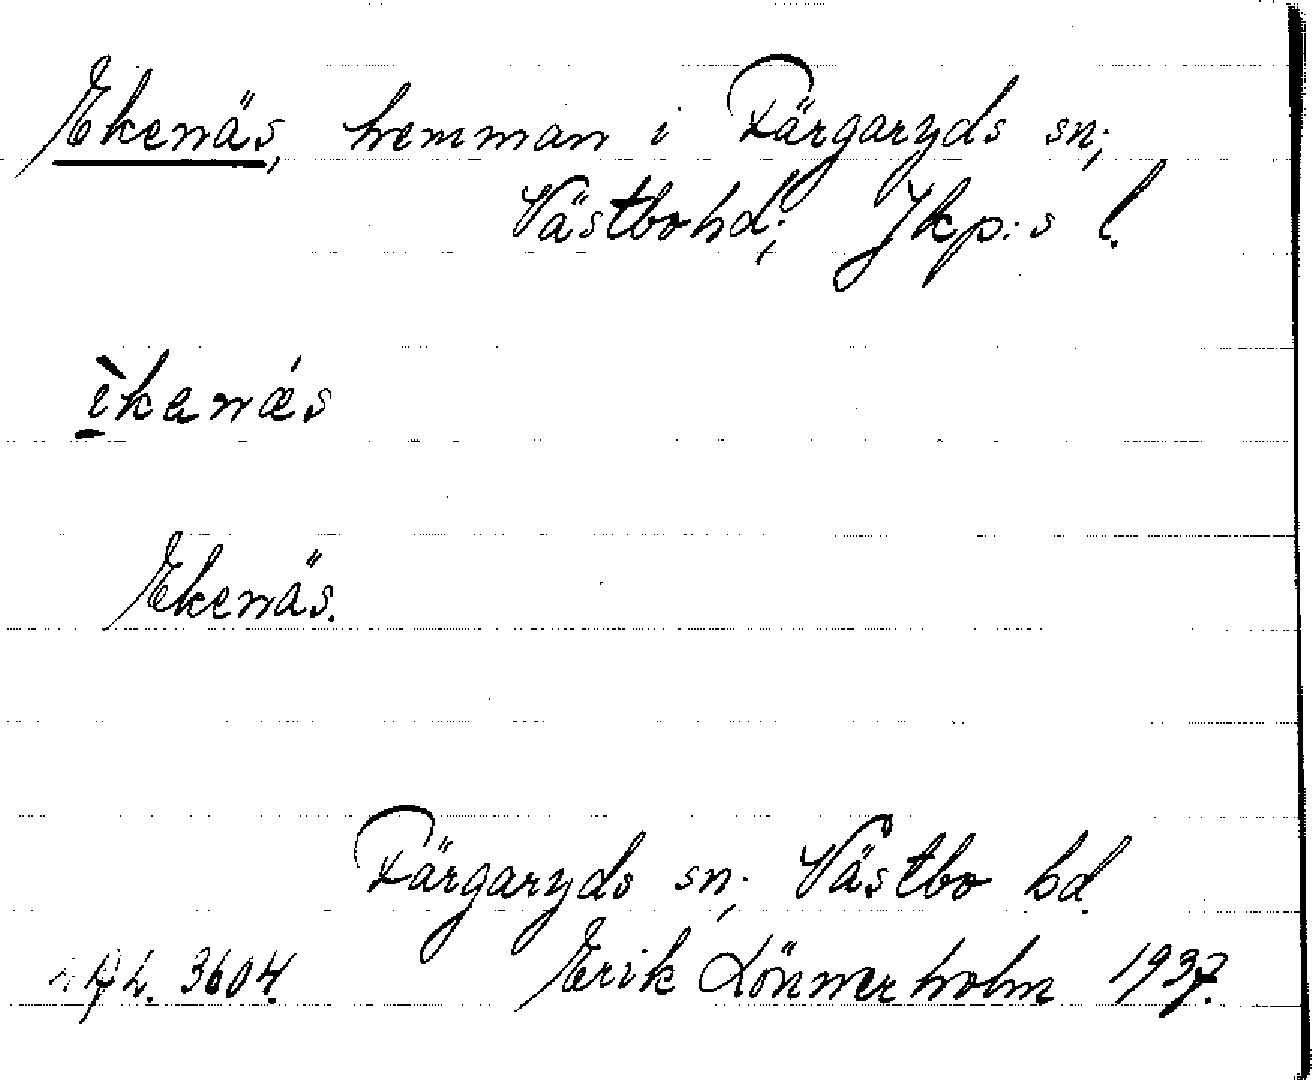 Ekenäs, hemman i Färgaryds sn;
Västbo hd; Jkp:s l.
èkenás
Ekenäs.
Färgaryds sn; Västbo hd.
3604. Erik Lönnerholm 1937.